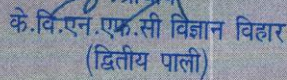 के.वि.एन.एफ.सी विज्ञान विहार
(द्वितीय पाली)